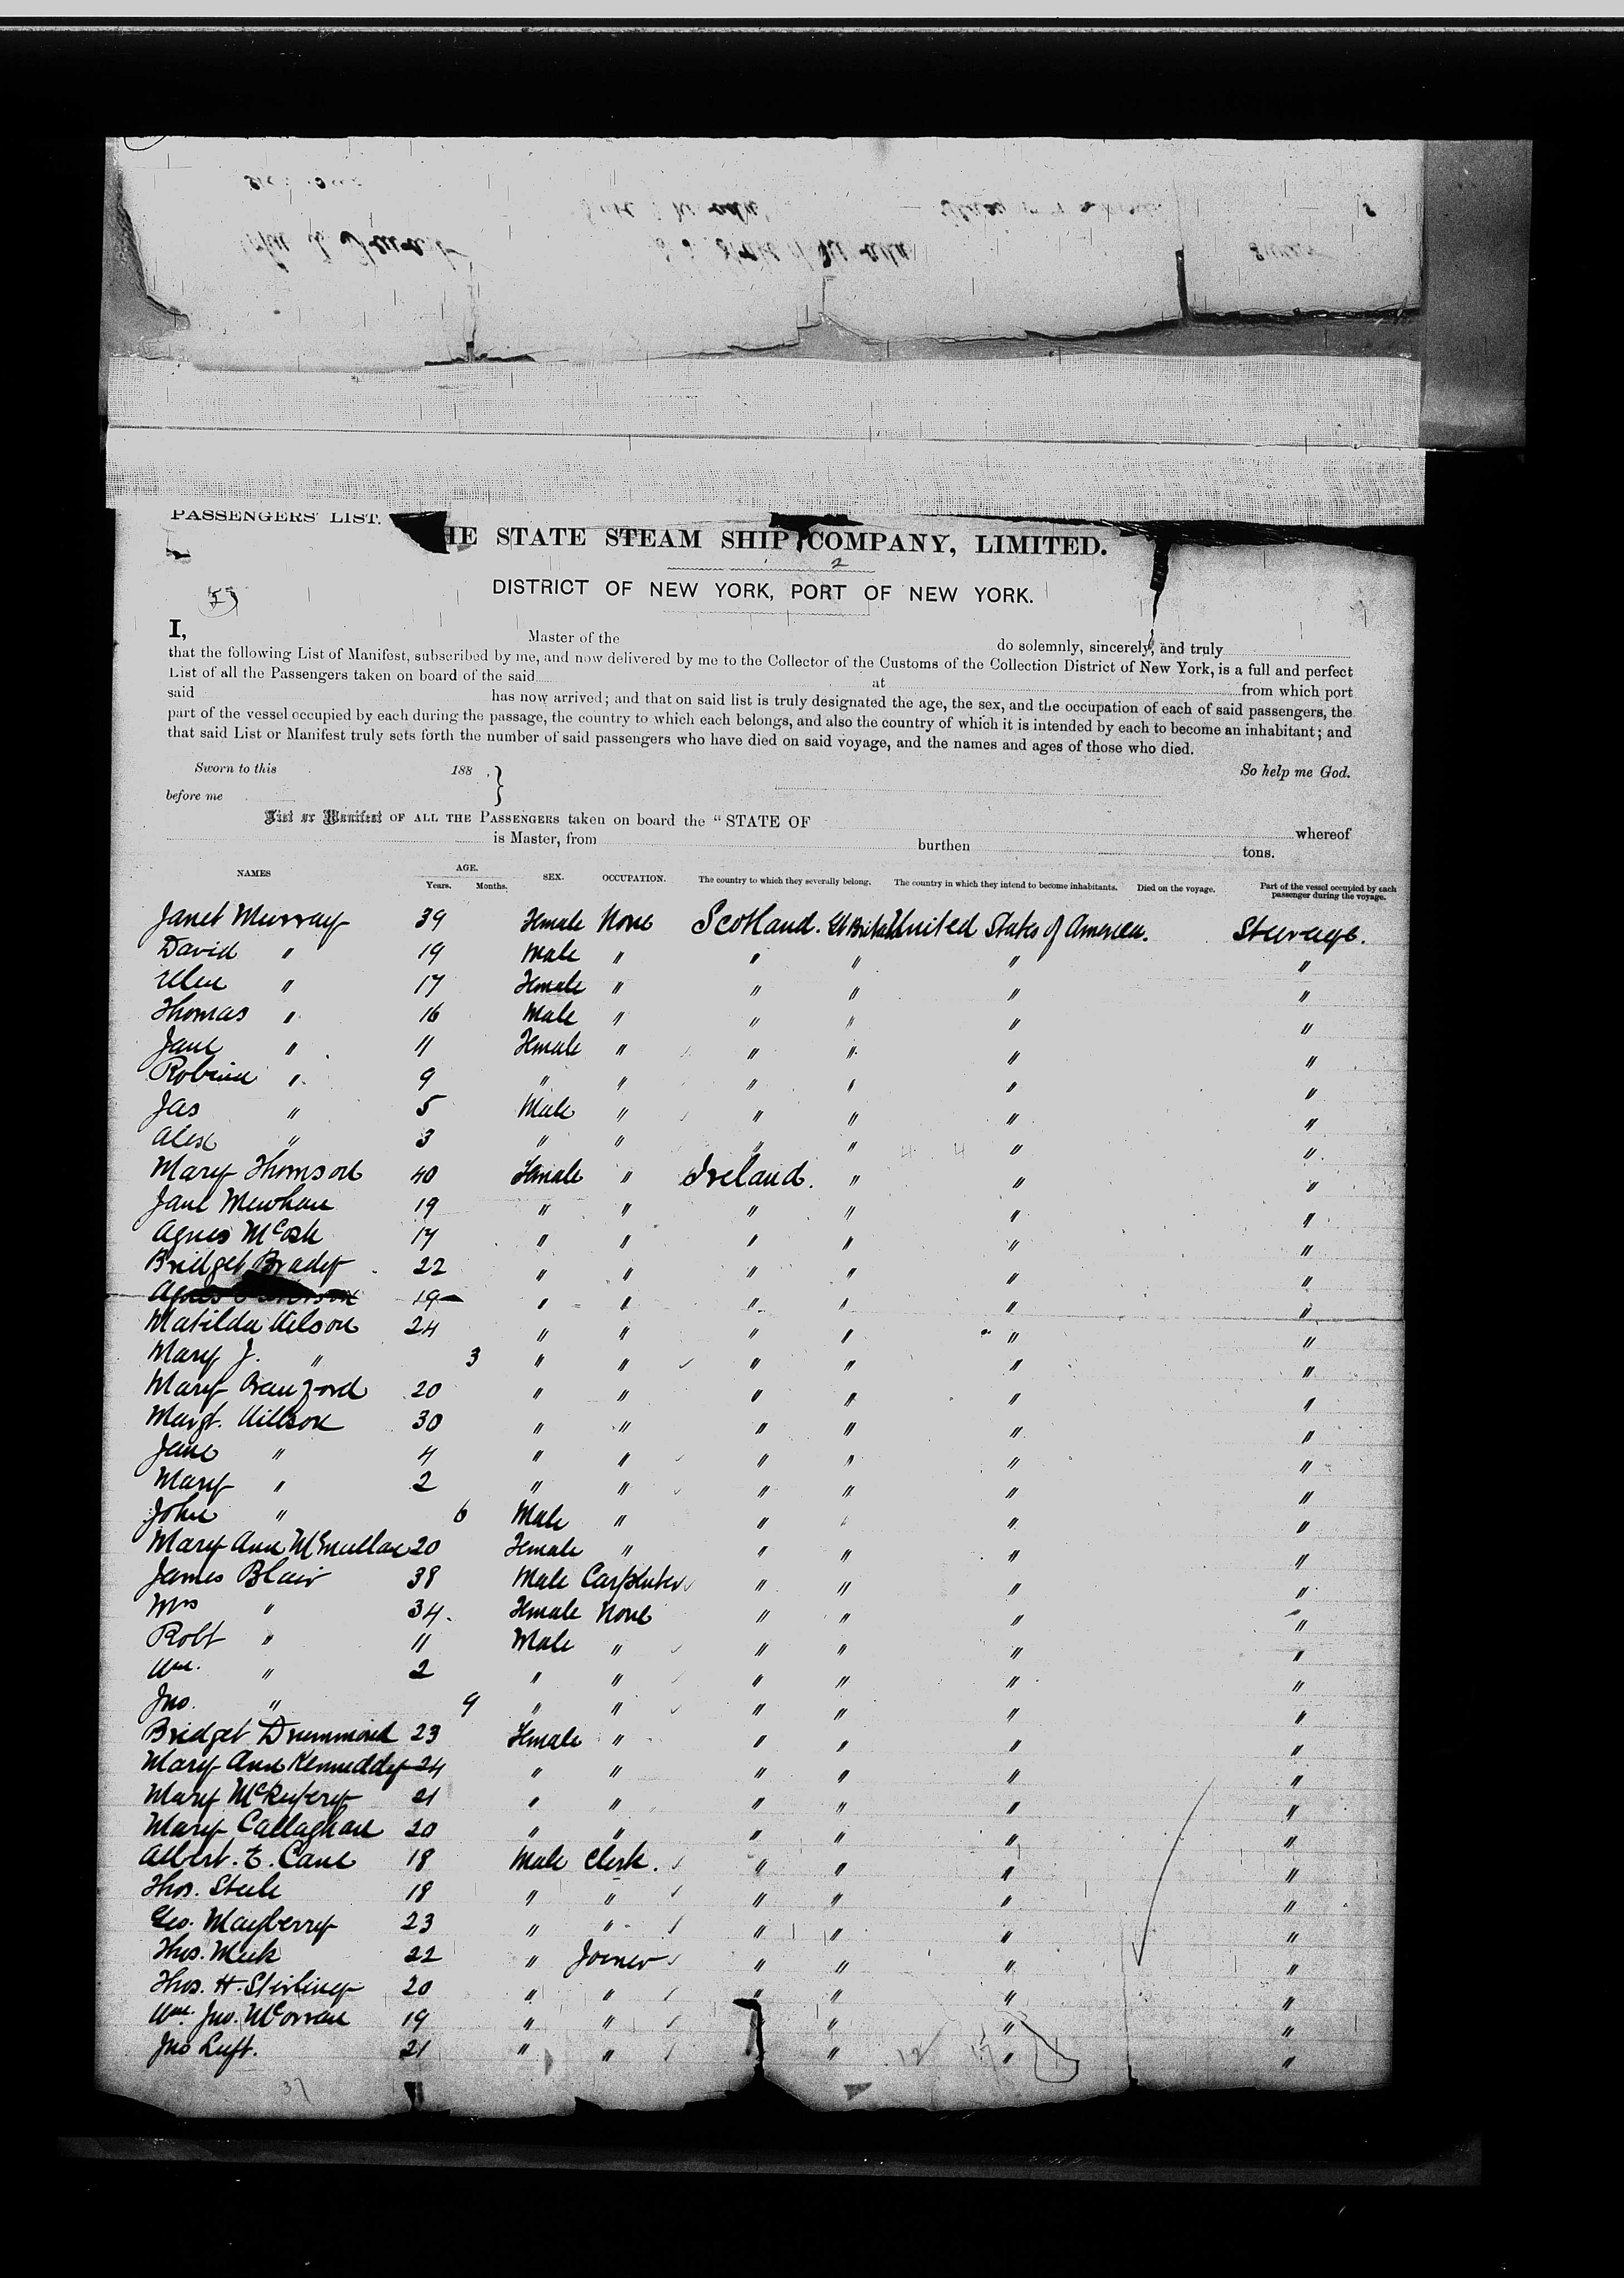 PASSENGERS' LIST.
HE STATE STEAM SHIP COMPANY, LIMITED.
2
DISTRICT OF NEW YORK, PORT OF NEW YORK.
I, Master of the do solemnly, sincerely, and truly
that the following List of Manifest, subscribed by me, and now delivered by me to the Collector of the Customs of the Collection District of New York, is a full and perfect
List of all the Passengers taken on board of the said at from which port
said has now arrived; and that on said list is truly designated the age, the sex, and the occupation of each of said passengers, the
part of the vessel occupied by each during the passage, the country to which each belongs, and also the country of which it is intended by each to become an inhabitant; and
that said List or Manifest truly sets forth the number of said passengers who have died on said voyage, and the names and ages of those who died.
Sworn to this 188 } So help me God.
before me
List or Manifest OF ALL THE PASSENGERS taken on board the "STATE OF whereof
is Master, from burthen tons.
NAMES AGE. Years. Months. SEX. OCCUPATION. The country to which they severally belong. The country in which they intend to become inhabitants. Died on the voyage. Part of the vessel occupied by each passenger during the voyage.
Janet Murray 39 Female None Scotland. Gt Britain United States of America. Steerage.
David " 19 Male " " " " "
Ellen " 17 Female " " " " "
Thomas " 16 Male " " " " "
Jane " 11 Female " " " " "
Robina " 9 " " " " " "
Jas " 5 Male " " " " "
Alex " 3 " " " " " "
Mary Thomson 40 Female " Ireland. " " "
Jane 19 " " " " " "
Agnes McCosh 17 " " " " " "
Bridget Brady 22 " " " " " "
Agnes 19 " " " " " "
Matilda Wilson 24 " " " " " "
Mary J. " 3 " " " " " "
Mary 20 " " " " " "
Margt. Willson 30 " " " " " "
Jane " 4 " " " " " "
Mary " 2 " " " " " "
John " 6 Male " " " " "
Mary Ann McMullan 20 Female " " " " "
James Blair 38 Male Carpenter " " " "
Mrs " 34. Female None " " " "
Robt " 11 Male " " " " "
Wm. " 2 " " " " " "
Jno. " 9 " " " " " "
Bridget Drummond 23 Female " " " " "
Mary Ann Kenneddy 24 " " " " " "
Mary 21 " " " " " "
Mary Callaghan 20 " " " " " "
Albert. E. Cane 18 Male Clerk. " " " "
Thos. Steele 18 " " " " " "
Geo. Mayberry 23 " " " " " "
Thos. Meek 22 " Joiner " " " "
Thos. H. Stirling 20 " " " " " "
Wm. Jno. McCorran 19 " " " " " "
Jno Luft. 21 " " " " " "
37